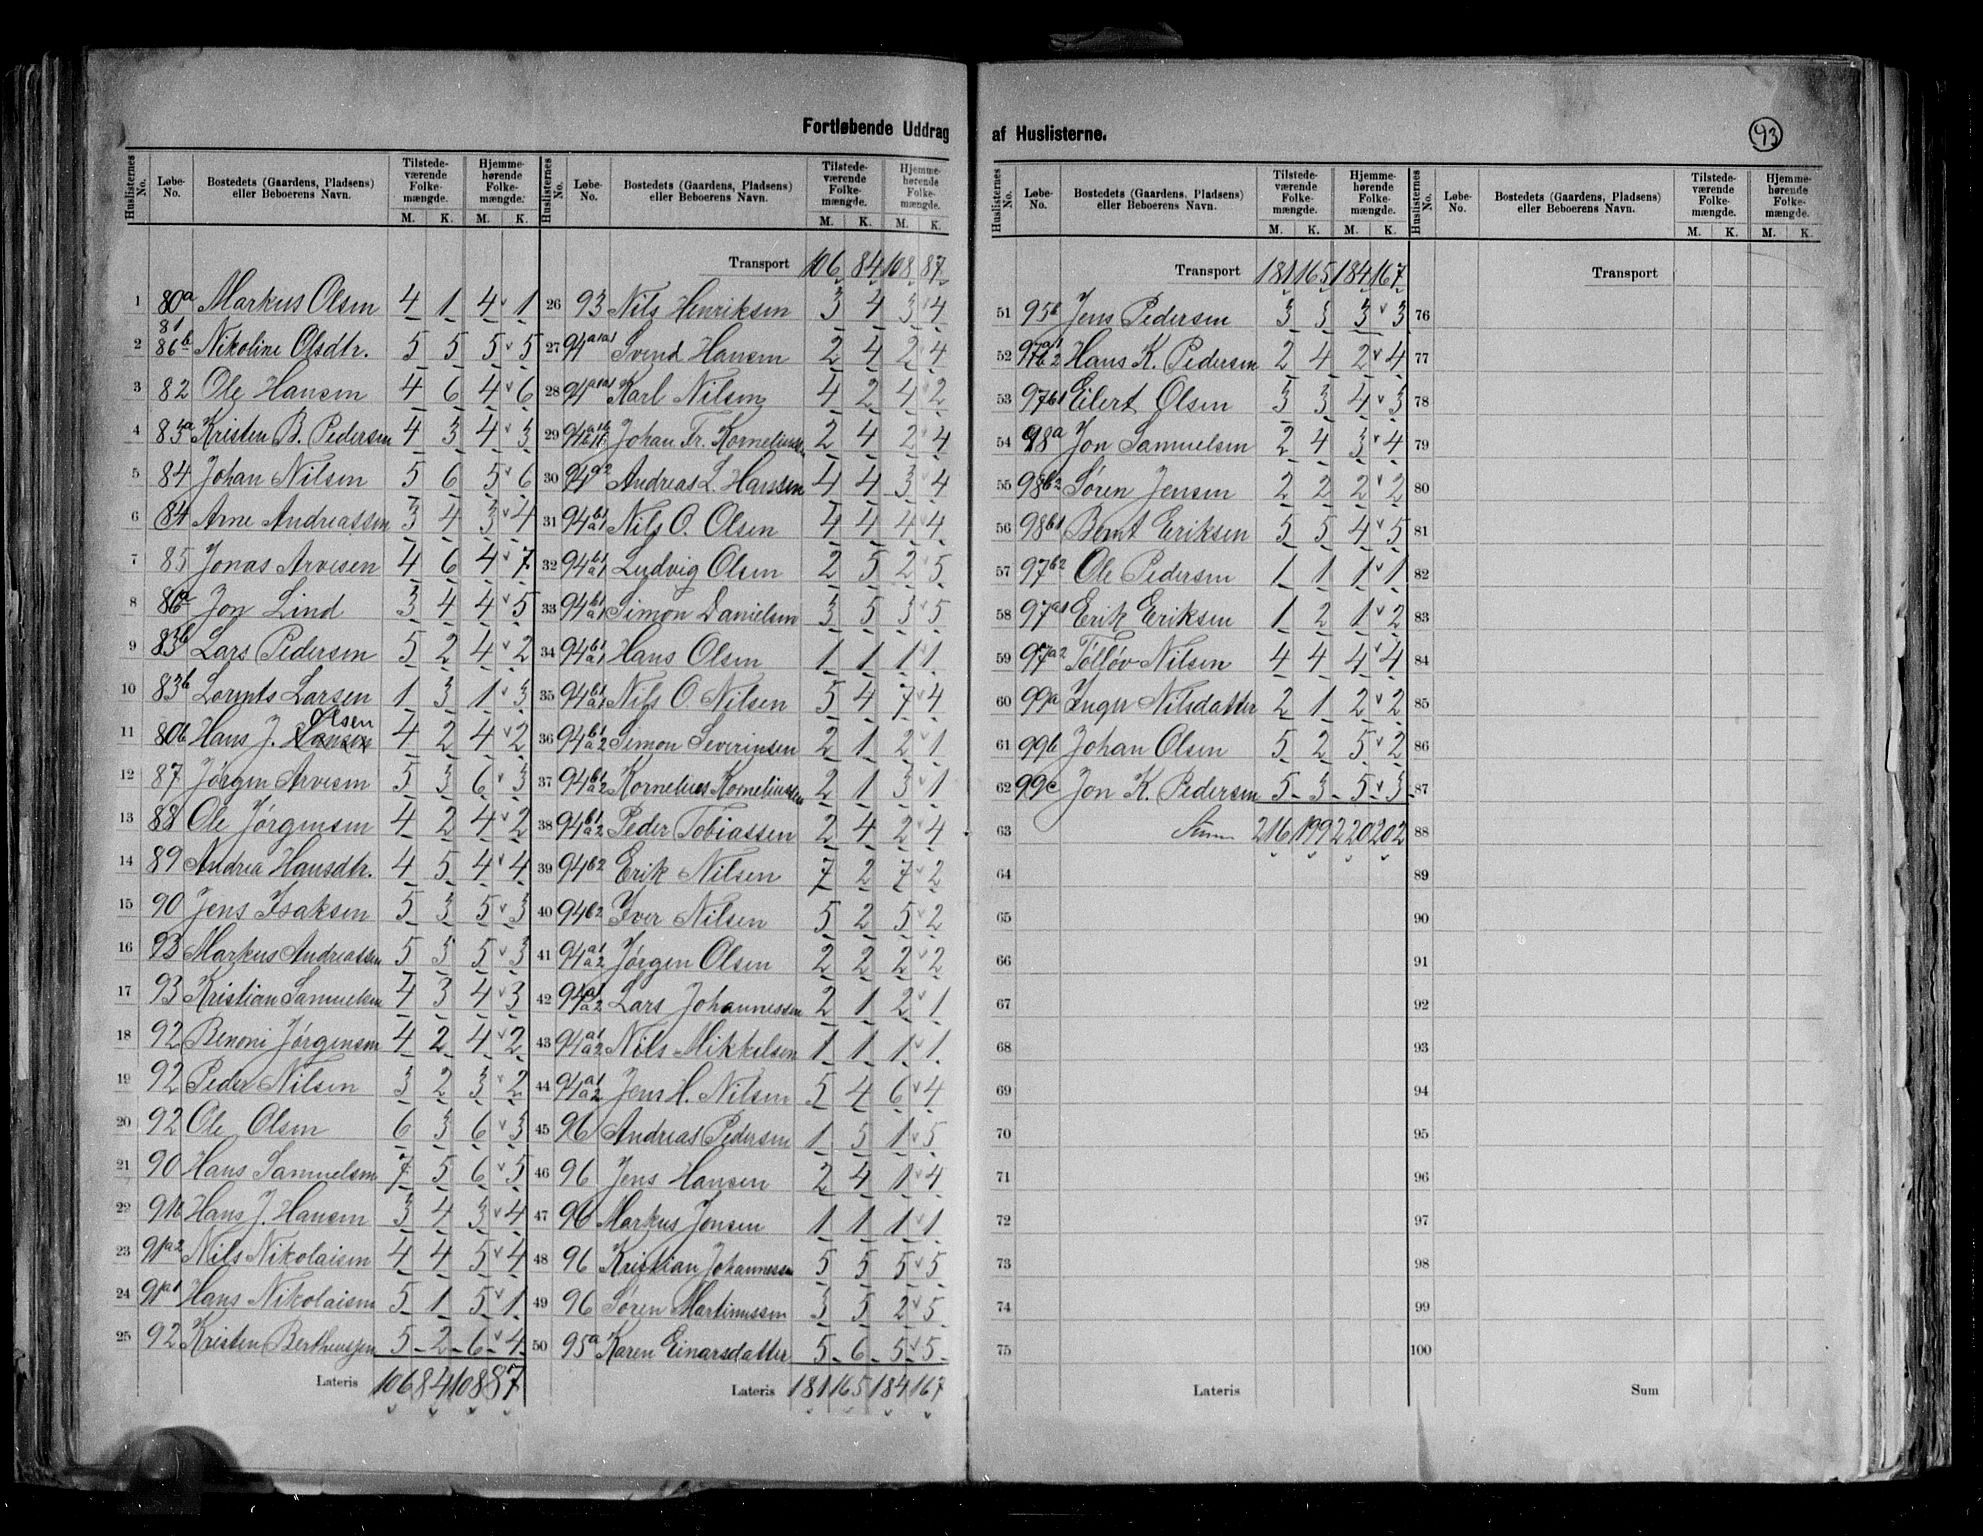 Fortløbende Uddrag af Huslisterne.
93
Huslisternes No. | Løbe-No. | Bostedets (Gaardens, Pladsens) eller Beboerens Navn. | Tilstedeværende Folkemængde. M. K. | Hjemmehørende Folkemængde. M. K.
1 80a Markus Olsen 4 1 4 1
2 81 86b Nikoline Olsdtr. 5 5 5 5
3 82 Ole Hansen 4 6 4 6
4 83a Kristen B. Pedersen 4 3 4 3
5 84 Johan Nilsen 5 6 5 6
6 84 Arne Andreassen 3 4 3 4
7 85 Jonas Arvesen 4 6 4 7
8 86a Jon Lind 3 4 4 5
9 83b Lars Pedersen 5 2 4 2
10 83b Lornts Larsen 1 3 1 3
11 80b Hans J. Hansen Olsen 4 2 4 2
12 87 Jørgen Arvesen 5 3 6 3
13 88 Ole Jørgensen 4 2 4 2
14 89 Andrea Hansdtr. 4 5 4 4
15 90 Jens Isaksen 5 3 5 3
16 93 Markus Andreassen 5 3 5 3
17 93 Kristian Samuelsen 4 3 4 3
18 92 Benoni Jørgensen 4 2 4 2
19 92 Peder Nilsen 3 2 3 2
20 92 Ole Olsen 6 3 6 3
21 90 Hans Samuelsen 7 5 6 5
22 91b Hans J. Hansen 3 4 3 4
23 91a2 Nils Nikolaisen 4 4 5 4
24 91a1 Hans Nikolaisen 5 1 5 1
25 92 Kristen Bertheussen 5 2 6 4
Lateris 106 84 108 87
Huslisternes No. | Løbe-No. | Bostedets (Gaardens, Pladsens) eller Beboerens Navn. | Tilstedeværende Folkemængde. M. K. | Hjemmehørende Folkemængde. M. K.
Transport 106 84 108 87
26 93 Nils Henriksen 3 4 3 4
27 94a1a1 Svend Hansen 2 4 2 4
28 94a1a1 Karl Nilsen 4 2 4 2
29 Johan Fr. Korneliussen 2 4 2 4
30 94a2 Andreas L. Hanssen 4 4 3 4
31 94b1 a1 Nils O. Olsen 4 4 4 4
32 94b1 a1 Ludvig Olsen 2 5 2 5
33 94b1 a1 Simon Danielsen 3 5 3 5
34 94b1 a1 Hans Olsen 1 1 1 1
35 94b1 a1 Nils O. Nilsen 5 4 7 4
36 94b1 a2 Simon Severinsen 2 1 2 1
37 94b1 a2 Kornelius Korneliussen 2 1 3 1
38 94b1 a2 Peder Tobiassen 2 4 2 4
39 94b2 Erik Nilsen 7 2 7 2
40 94b2 Iver Nilsen 5 2 5 2
41 94a1 a2 Jørgen Olsen 2 2 2 2
42 94a1 a2 Lars Johannessen 2 1 2 1
43 94a1 a2 Nils Mikkelsen 1 1 1 1
44 94a1 a2 Jens H. Nilsen 5 4 6 4
45 96 Andreas Pedersen 1 5 1 5
46 96 Jens Hansen 2 4 1 4
47 96 Markus Jonsen 1 1 1 1
48 96 Kristian Johannessen 5 5 5 5
49 96 Søren Martinussen 3 5 2 5
50 95a Karen Einarsdatter 5 6 5 5
Lateris 181 165 184 167
Huslisternes No. | Løbe-No. | Bostedets (Gaardens, Pladsens) eller Beboerens Navn. | Tilstedeværende Folkemængde. M. K. | Hjemmehørende Folkemængde. M. K.
Transport 181 165 184 167
51 95b Jens Pedersen 3 3 3 3
52 97a1 b2 Hans K. Pedersen 2 4 2 4
53 97b1 Eilert Olsen 3 3 4 3
54 98a Jon Samuelsen 2 4 3 4
55 98b2 Søren Jensen 2 2 2 2
56 98b1 Bernt Eriksen 5 5 4 5
57 97b2 Ole Pedersen 1 1 1 1
58 97a1 Erik Eriksen 1 2 1 2
59 97a2 Tølløv Nilsen 4 4 4 4
60 99a Inger Nilsdatter 2 1 2 2
61 99b Johan Olsen 5 2 5 2
62 99c Jon K. Pedersen 5 3 5 3
63 Sum 216 199 220 202
64
65
66
67
68
69
70
71
72
73
74
75
Lateris
Huslisternes No. | Løbe-No. | Bostedets (Gaardens, Pladsens) eller Beboerens Navn. | Tilstedeværende Folkemængde. M. K. | Hjemmehørende Folkemængde. M. K.
Transport
76
77
78
79
80
81
82
83
84
85
86
87
88
89
90
91
92
93
94
95
96
97
98
99
100
Sum